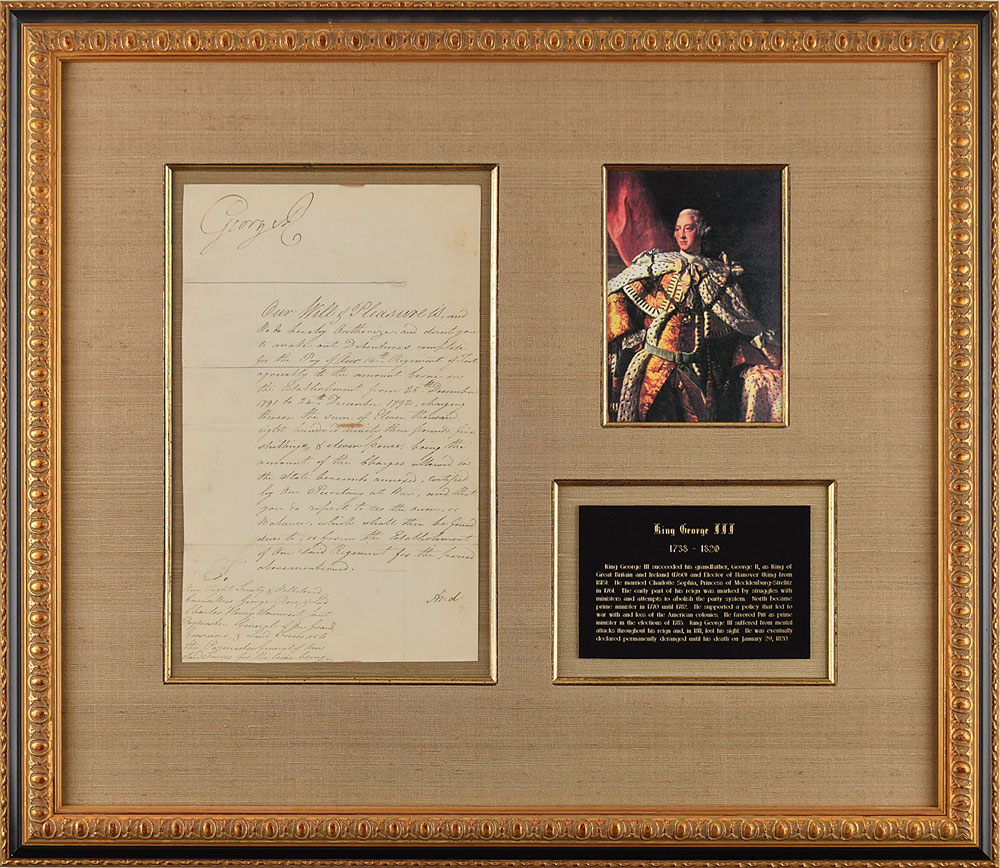 George R
Our Will & Pleasure is, and
We do hereby Authorize, and direct you
to make out Debentures complete
for the Pay of Our 14th Regiment of Foot
agreeably to the amount borne on
the Establishment from 25th December
1791 to 24th December 1792, charging
thereon the sum of Eleven thousand
eight hundred ninety three pounds, five
shillings, & eleven pence, being the
amount of the Charges allowed in
the State hereunto annexed, certified
by Our Secretary at War, and that
you do
Balance, which shall then be found
due to, or from the Establishment
of Our said Regiment for the period
abovementioned.
To
Our Right Trusty & Wellbeloved
Councillors George
Charles Henry
General of
& Land Forces or to
the Paymaster General of Our
Land Forces for the time being.
King George III
1738 - 1820
King George III succeeded his grandfather, George II, as King of
Great Britain and Ireland (1760) and Elector of Hanover (King from
1815). He married Charlotte Sophia, Princess of Mecklenburg-Strelitz
in 1761. The early part of his reign was marked by struggles with
ministers and attempts to abolish the party system. North became
prime minister in 1770 until 1782. He supported a policy that led to
war with and loss of the American colonies. He favored Pitt as prime
minister in the elections of 1785. King George III suffered from mental
attacks throughout his reign and, in 1811, lost his sight. He was eventually
declared permanently deranged until his death on January 29, 1820.